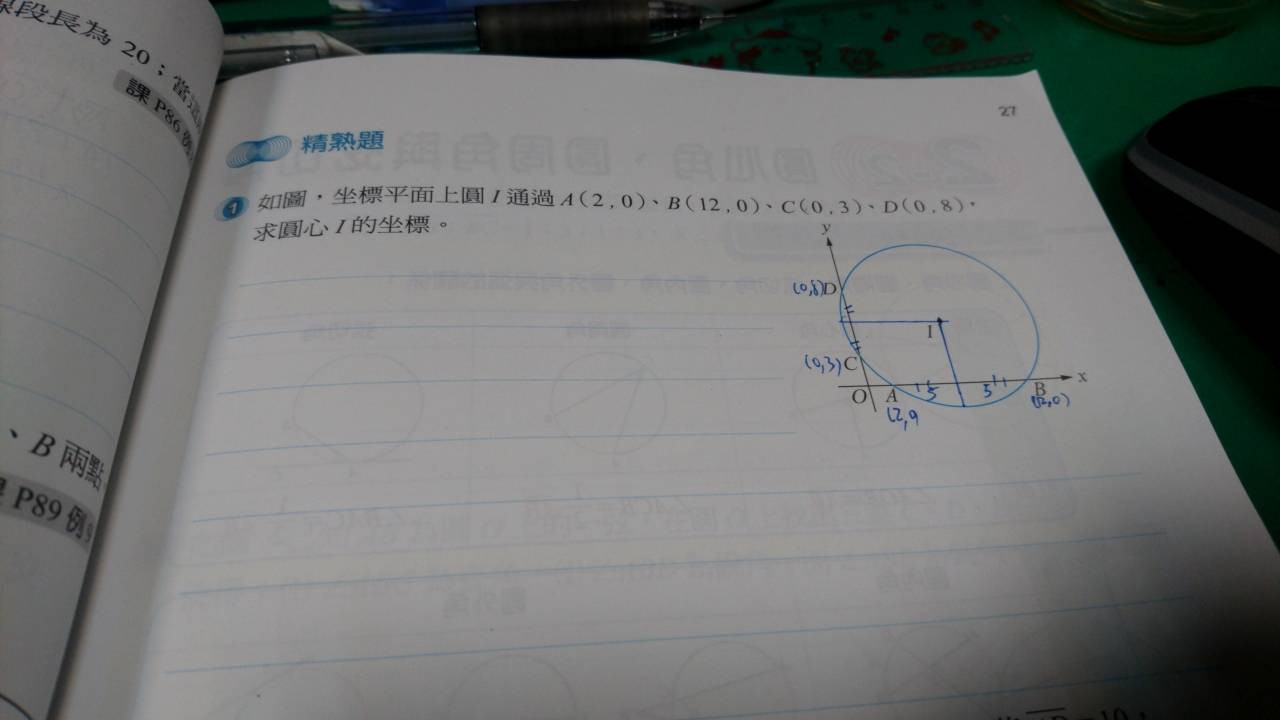 線段長為 20；當這
課 P86 例
、B 兩點
課 P89 例 9
27
精熟題
1 如圖，坐標平面上圓 I 通過 A(2,0)、B(12,0)、C(0,3)、D(0,8)，
求圓心 I 的坐標。
y
(0,8) D
I
(0,3) C
x
O A 5 5 B
(2,0
(12,0)